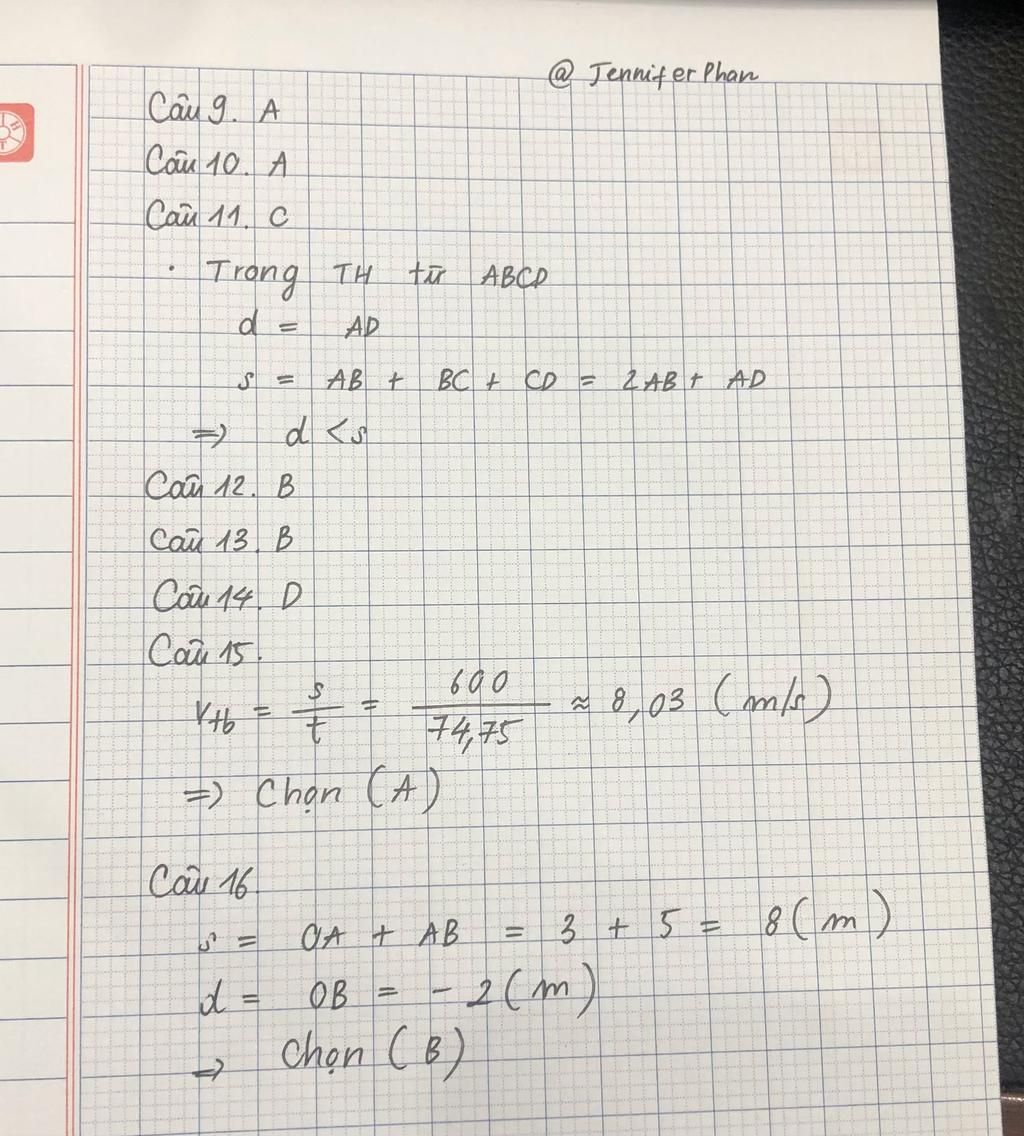 @ Jennifer Phan
Câu 9. A
Câu 10. A
Câu 11. C
· Trong TH từ ABCD
d = AD
s = AB + BC + CD = 2AB + AD
=> d < s
Câu 12. B
Câu 13. B
Câu 14. D
Câu 15.
Vtb = s/t = 600/74,75 ≈ 8,03 (m/s)
=> Chọn (A)
Câu 16.
s = OA + AB = 3 + 5 = 8 (m)
d = OB = - 2 (m)
=> Chọn (B)